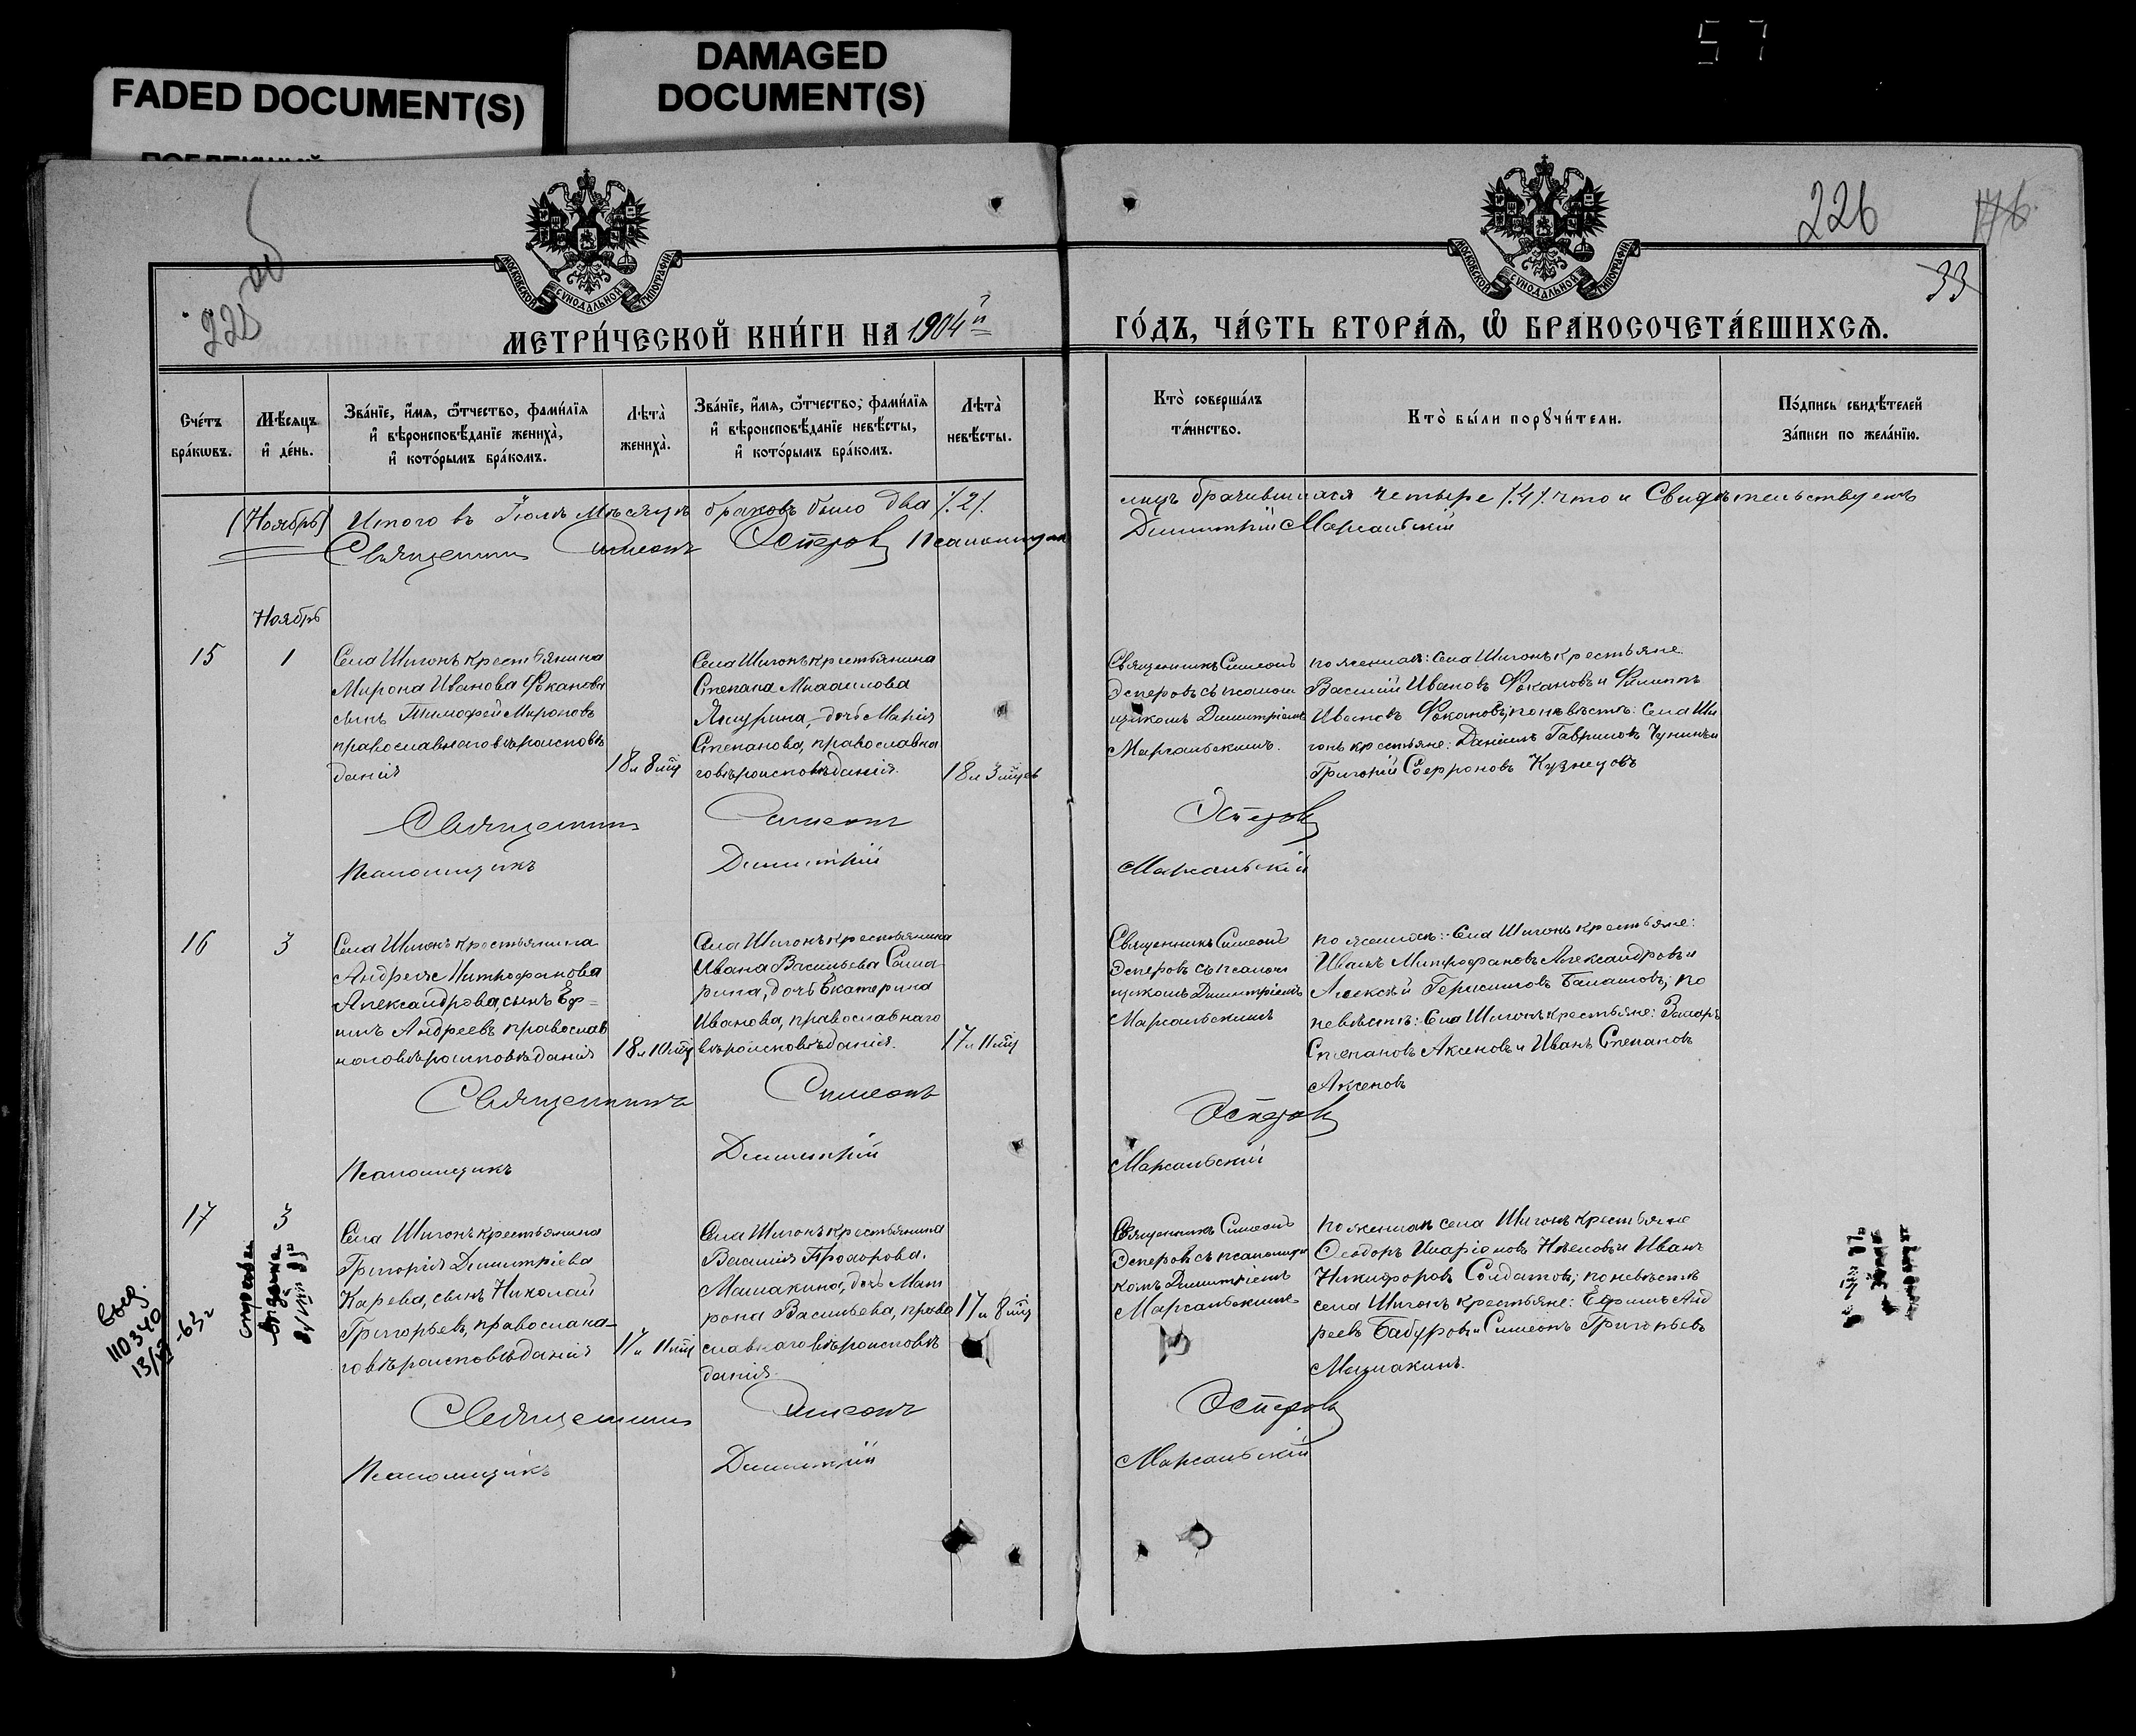 FADED DOCUMENT(S)
DAMAGED
DOCUMENT(S)
57
225 об
226
МОСКОВСКОЙ СѴНОДАЛЬНОЙ ТИПОГРАФІИ
МОСКОВСКОЙ СѴНОДАЛЬНОЙ ТИПОГРАФІИ
33
МЕТРИ́ЧЕСКОЙ КНИ́ГИ НА 1904й
ГО́ДЪ, ЧА́СТЬ ВТОРА́Ѧ, Ѡ БРАКОСОЧЕТА́ВШИХСѦ.
Сче́тъ
бра́кѡвъ.
Мѣ́сѧцъ
и де́нь.
Зва́нїе, и́мѧ, ѻ́тчество, фами́лїѧ
и вѣроисповѣ́данїе жениха̀,
и кото́рымъ бра́комъ.
Лѣта̀
жениха̀.
Зва́нїе, и́мѧ, ѻ́тчество, фами́лїѧ
и вѣроисповѣ́данїе невѣ́сты,
и кото́рымъ бра́комъ.
Лѣта̀
невѣ́сты.
Кто̀ соверша́лъ
та́инство.
Кто̀ бы́ли порꙋчи́тели.
По́дпись свидѣ́телей
за́писи по жела́нїю.
(Ноябрь) Итого въ Іюлѣ мѣсяцѣ браковъ было два /2/.
лицъ брачившихся четыре /4/ что и свидѣтельствуемъ
Священникъ Симеонъ Эсперовъ Псаломщикъ
Димитрій Марсальскій
Ноябрь
15
1
Села Шигонъ крестьянина
Мирона Иванова Фоканова
сынъ Тимофей Мироновъ
православнаго вѣроисповѣ
данія
18 л 8 мц
Села Шигонъ крестьянина
Степана Михаилова
дочь Марія
Степанова, православна
го вѣроисповѣданія.
18 л 3 мцев
Священникъ Симеонъ
Эсперовъ съ псалом
щикомъ Димитріемъ
Марсальскимъ.
по женихѣ: Села Шигонъ крестьяне
Василій Ивановъ Фокановъ и Филиппъ
Ивановъ Фокановъ; по невѣстѣ: Села Ши
гонъ крестьяне: Даніилъ Гавриловъ Чунинъ и
Григорій Софроновъ Кузнецовъ
Священникъ Симеонъ Эсперовъ
Псаломщикъ Димитрій Марсальскій
16
3
Села Шигонъ крестьянина
Андрея Митрофанова
Александрова, сынъ Еф=
имъ Андреевъ православ
наго вѣроисповѣданія
18 л 10 мц
Села Шигонъ крестьянина
Ивана Васильева Сама
рина, дочь Екатерина
Иванова, православнаго
вѣроисповѣданія.
17 л 11 мц
Священникъ Симеонъ
Эсперовъ съ псалом
щикомъ Димитріемъ
Марсальскимъ
по женихѣ: Села Шигонъ крестьяне:
Иванъ Митрофановъ Александровъ и
Алексѣй Герасимовъ Балашовъ; по
невѣстѣ: Села Шигонъ крестьяне: Захаръ
Степановъ Аксеновъ и Иванъ Степановъ
Аксеновъ
Священникъ Симеонъ Эсперовъ
Псаломщикъ Димитрій Марсальскій
17
3
Села Шигонъ крестьянина
Григорія Димитріева
Карева, сынъ Николай
Григорьевъ, православна-
го вѣроисповѣданія
17 л 11 мц
Села Шигонъ крестьянина
Василія Прохорова
Машакина, дочь Мат
рона Васильева, право
славнаго вѣроисповѣ
данія.
17 л 8 мц
Священникъ Симеонъ
Эсперовъ съ псаломщи
комъ Димитріемъ
Марсальскимъ
по женихѣ села Шигонъ крестьяне
Ѳеодоръ Иларіоновъ и Иванъ
Никифоровъ Солдатовъ; по невѣстѣ
села Шигонъ крестьяне: Ефимъ Анд
реевъ Бабуровъ и Симеонъ Григорьевъ
Машакинъ.
справка
выдана
выд.
110340
13/XII-63г
Священникъ Симеонъ Эсперовъ
Псаломщикъ Димитрій Марсальскій